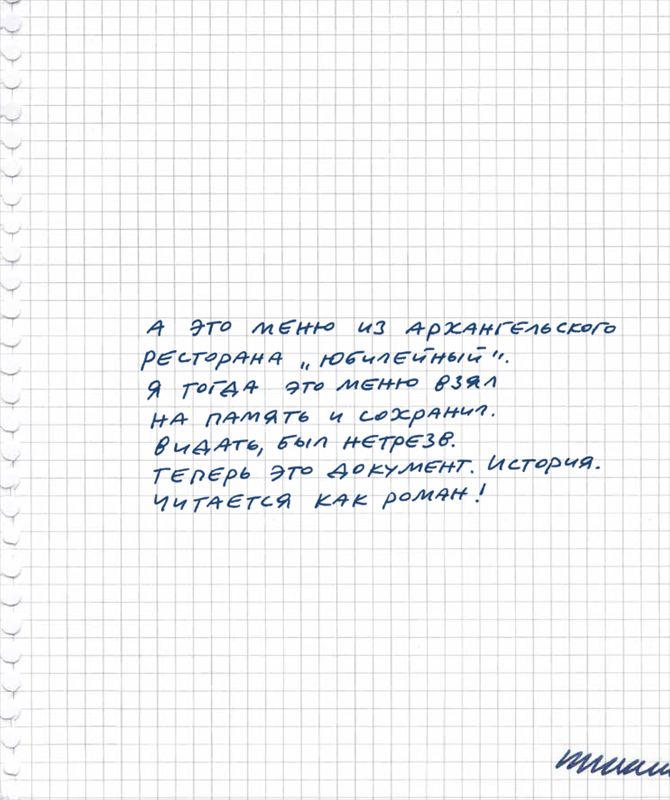 А ЭТО МЕНЮ ИЗ АРХАНГЕЛЬСКОГО
РЕСТОРАНА „ЮБИЛЕЙНЫЙ".
Я ТОГДА ЭТО МЕНЮ ВЗЯЛ
НА ПАМЯТЬ И СОХРАНИЛ.
ВИДАТЬ, БЫЛ НЕТРЕЗВ.
ТЕПЕРЬ ЭТО ДОКУМЕНТ. ИСТОРИЯ.
ЧИТАЕТСЯ КАК РОМАН!